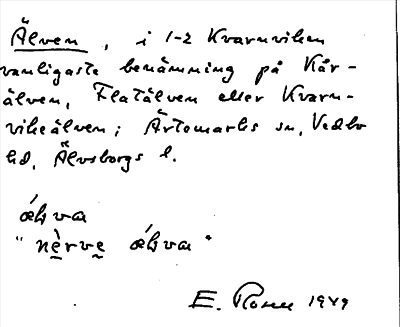 Älven, i 1-2 Kvarnviken
vanligaste benämning på Kår-
älven, Flatälven eller Kvarn-
vikeälven; Ärtemarks sn, Vedbo
hd, Älvsborgs l.
ǽlva
"nèrve ǽlva"
E. 1949